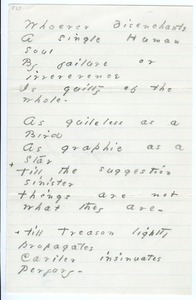 Whoever Disenchants
A Single Human
Soul
By failure or
irreverence
Is guilty of the
whole.
As guileless as a
Bird
As graphic as a
Star
+ till the suggestion
sinister
things are not
what they are -
+ till Treason lightly
propagates
Caviler insinuates
Perjury -